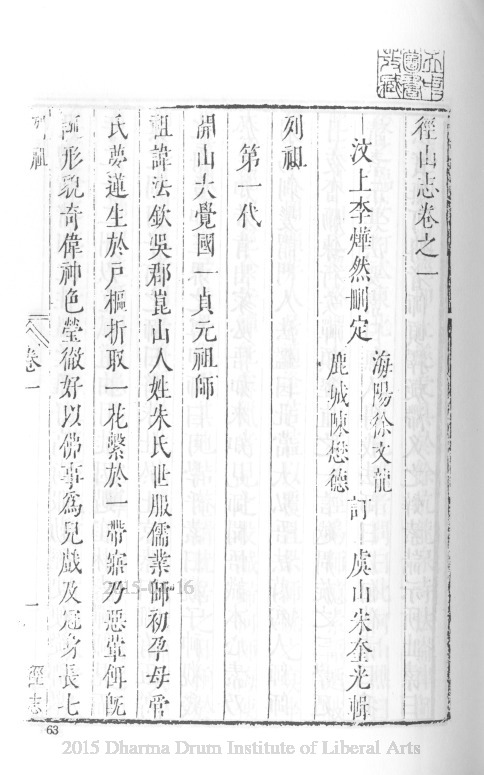 徑山志卷之一
汶上李燁然刪定
海陽徐文龍
鹿城陳懋德
訂
虞山宋奎光輯
列祖
第一代
開山大覺國一貞元祖師
祖諱法欽吳郡崑山人姓朱氏世服儒業師初孕母管
氏夢蓮生於戶樞折取一花繫於一帶寤乃惡葷餌既
形貌奇偉神色瑩徹好以佛事為兒戲及冠身長七
列祖
卷一
一
徑志
63
2015 Dharma Drum Institute of Liberal Arts